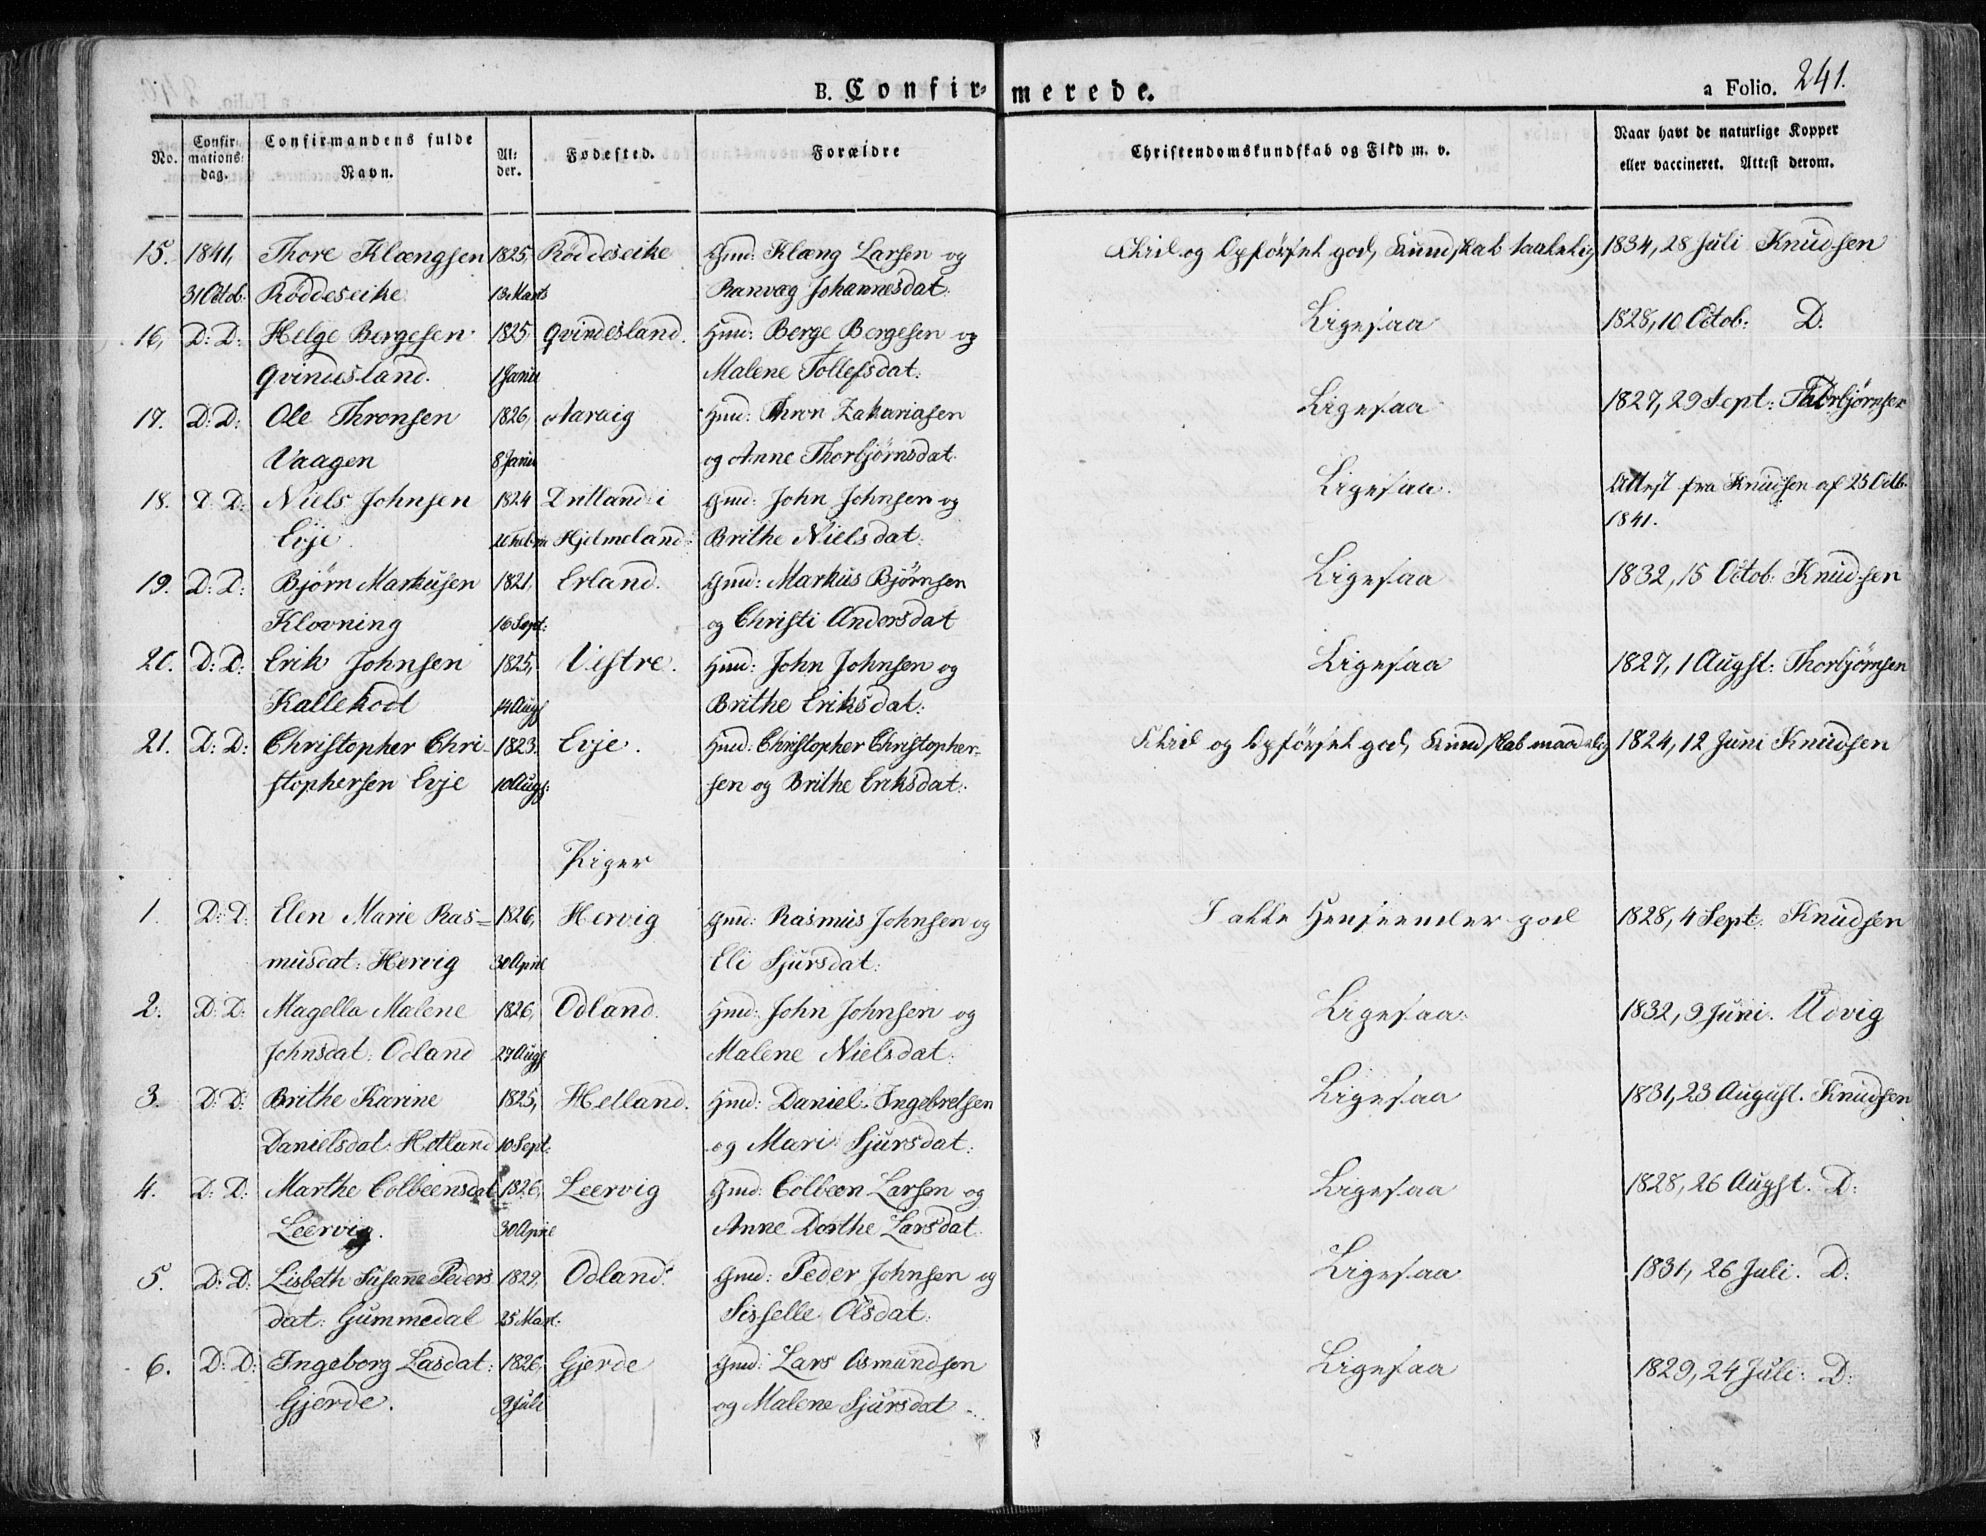 B. Confir- merede. a Folio. 241.
No. Confir- mations- dag. Confirmandens fulde Navn. Al- der. Fødested. Forældre Christendomskundskab og Flid m. v. Naar havt de naturlige Kopper eller vaccineret. Attest derom.
15. 1841, Thore Klængsen 1825, Röddeseike Gmd: Klæng Larsen og Flid og Opförsel god, Kundskab taalelig 1834, 28 Juli Knudsen
31 Octob: Röddeseike 13 Marts Ranvæg Johannesdat:
16, D: D: Helge Bergesen 1825, Qvindesland. Gmd: Berge Bergesen og Ligesaa 1828, 10 Octob: D.
Qvindesland. 1 Janu Malene Tollefsdat:
17. D: D: Ole Thronsen 1826, Aaraig Gmd: Thron Zakariasen Ligesaa 1827, 29 Sept: Thorbjørnsen
Vaagen 8 Janu og Anne Thorbjørnsdat.
18. D: D: Niels Johnsen 1824 i Gmd: John Johnsen og Ligesaa. Attest fra Knudsen af 25 Octb.
Evje. Hjelmeland. Brithe Nielsdat: 1841.
19. D: D: Bjørn Markusen 1821, Erland. Gmd: Markus Bjørnsen Ligesaa 1832, 15 Octob: Knudsen
Klovning 16 Sept: og Christi Andersdat
20. D: D: Erik Johnsen 1825, Vestre. Gmd: John Johnsen og Ligesaa 1827, 1 Augst: Thorbjørnsen
Kallekodt 14 Augs Brithe Eriksdat:
21. D: D: Christopher Chri- 1823. Evje. Gmd: Christopher Christopher- Flid og Opførsel god, Kundskab maadelig 1824, 12 Juni Knudsen
stophersen Evje 10 Augs: sen og Brithe Eriksdat:
Piger
1. D: D. Elen Marie Ras- 1826, Hervig Gmd: Rasmus Johnsen og I alle Henseender god 1828, 4 Sept: Knudsen
musdat: Hervig 30 April Eli Sjursdat:
2. D: D: Magella Malene 1826, Odland. Gmd: John Johnsen og Ligesaa. 1832, 9 Juni. Udvig
Johnsdat: Odland 27 Augs Malene Nielsdat:
3. D: D: Brithe Karine 1825, Hetland. Gmd: Daniel Ingebretsen Ligesaa 1831, 23 August. Knudsen
Danielsdat: Hetland 10 Sept: og Mari Sjursdat:
4. D: D: Marthe Colbeensdat 1826, Leervig Gmd: Colbeen Larsen og Ligesaa 1828, 26 Augst. D:
Leervig. 30 April Anne Dorthe Larsdat
5. D: D: Lisbeth Susanne Peders 1829. Odland. Gmd: Peder Johnsen og Ligesaa 1831, 26 Juli. D:
dat: Gummedal 25 Mart: Sisselle Olsdat:
6. D: D: Ingeborg Lasdat: 1826 Gjerde Gmd: Lars Osmundsen Ligesaa 1829, 24 Juli: D:
Gjerde. 9 Juli og Malene Sjursdat